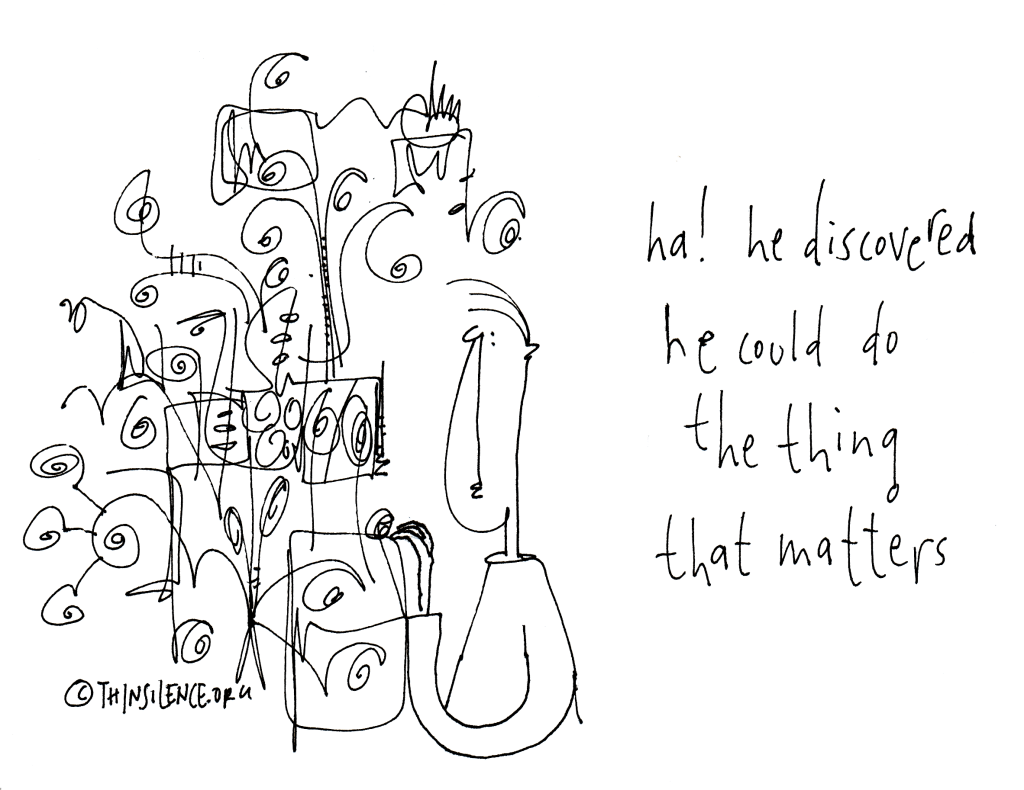 ha! he discovered
he could do
the thing
that matters
© THINSILENCE.ORG